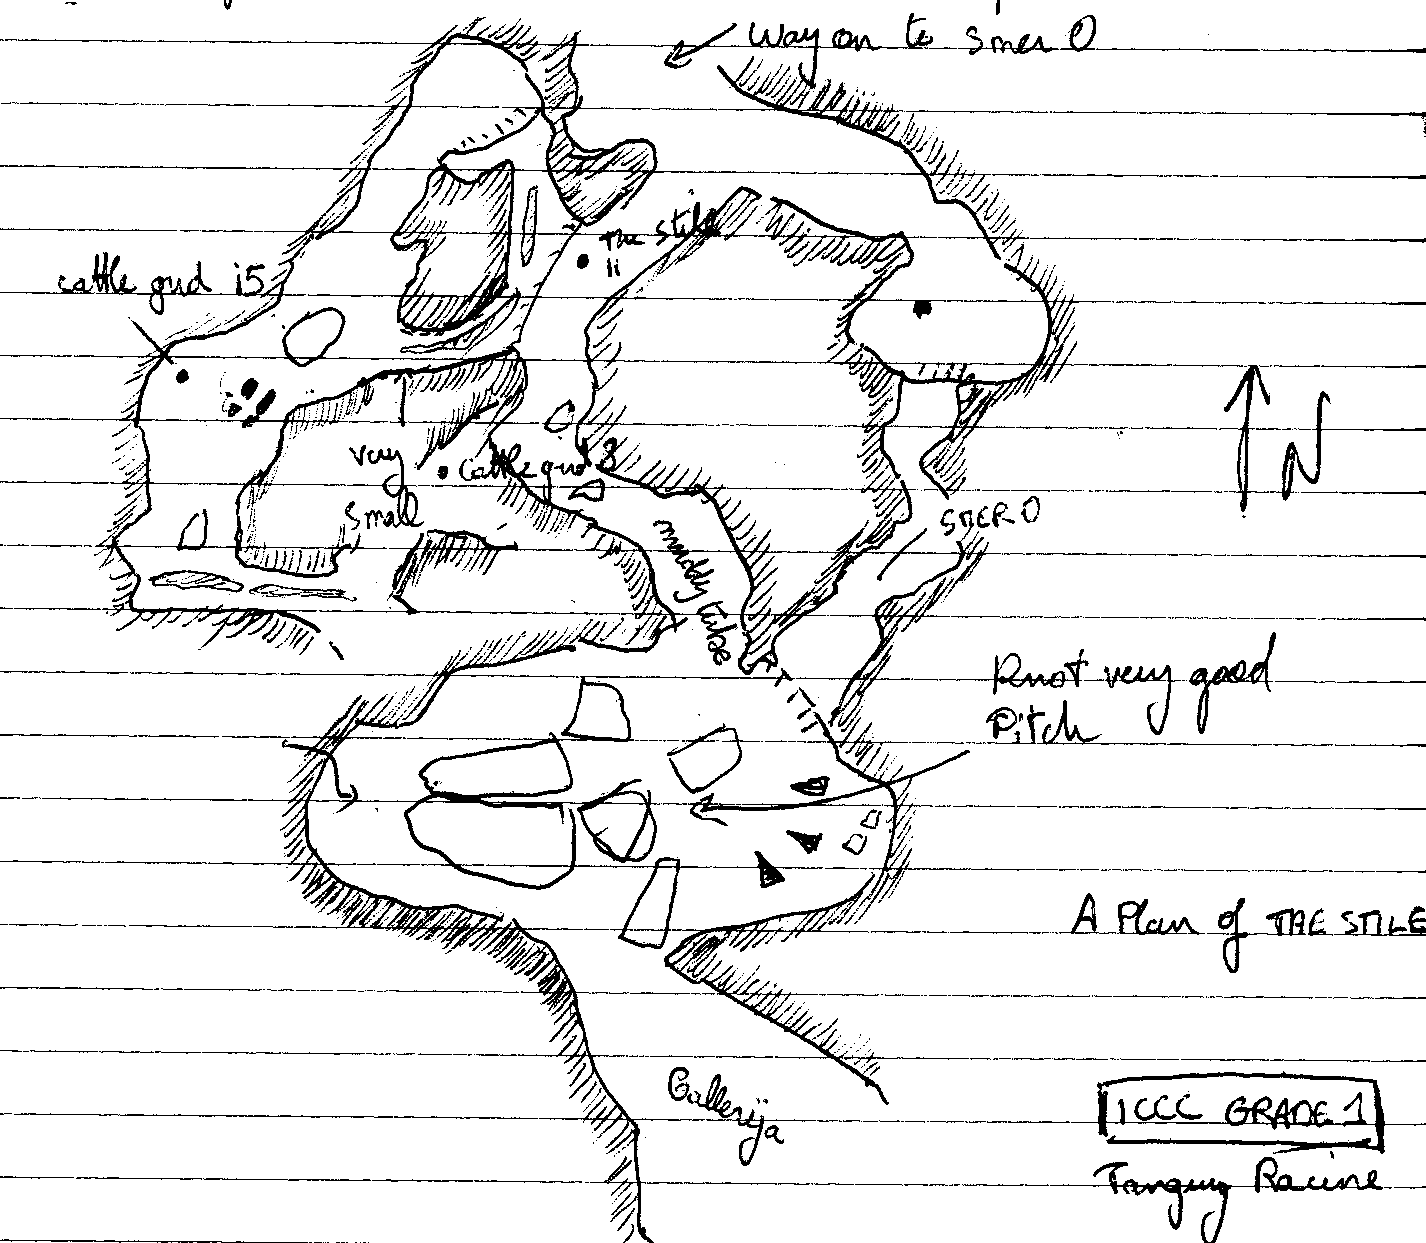 Way on to Smer 0
The stile
11
cattle grid 15
very
small
cattle grid 8
muddy tube
SMER 0
N
P not very good
Pitch
A Plan of THE STILE
Gallerija
ICCC GRADE 1
Tanguy Racine